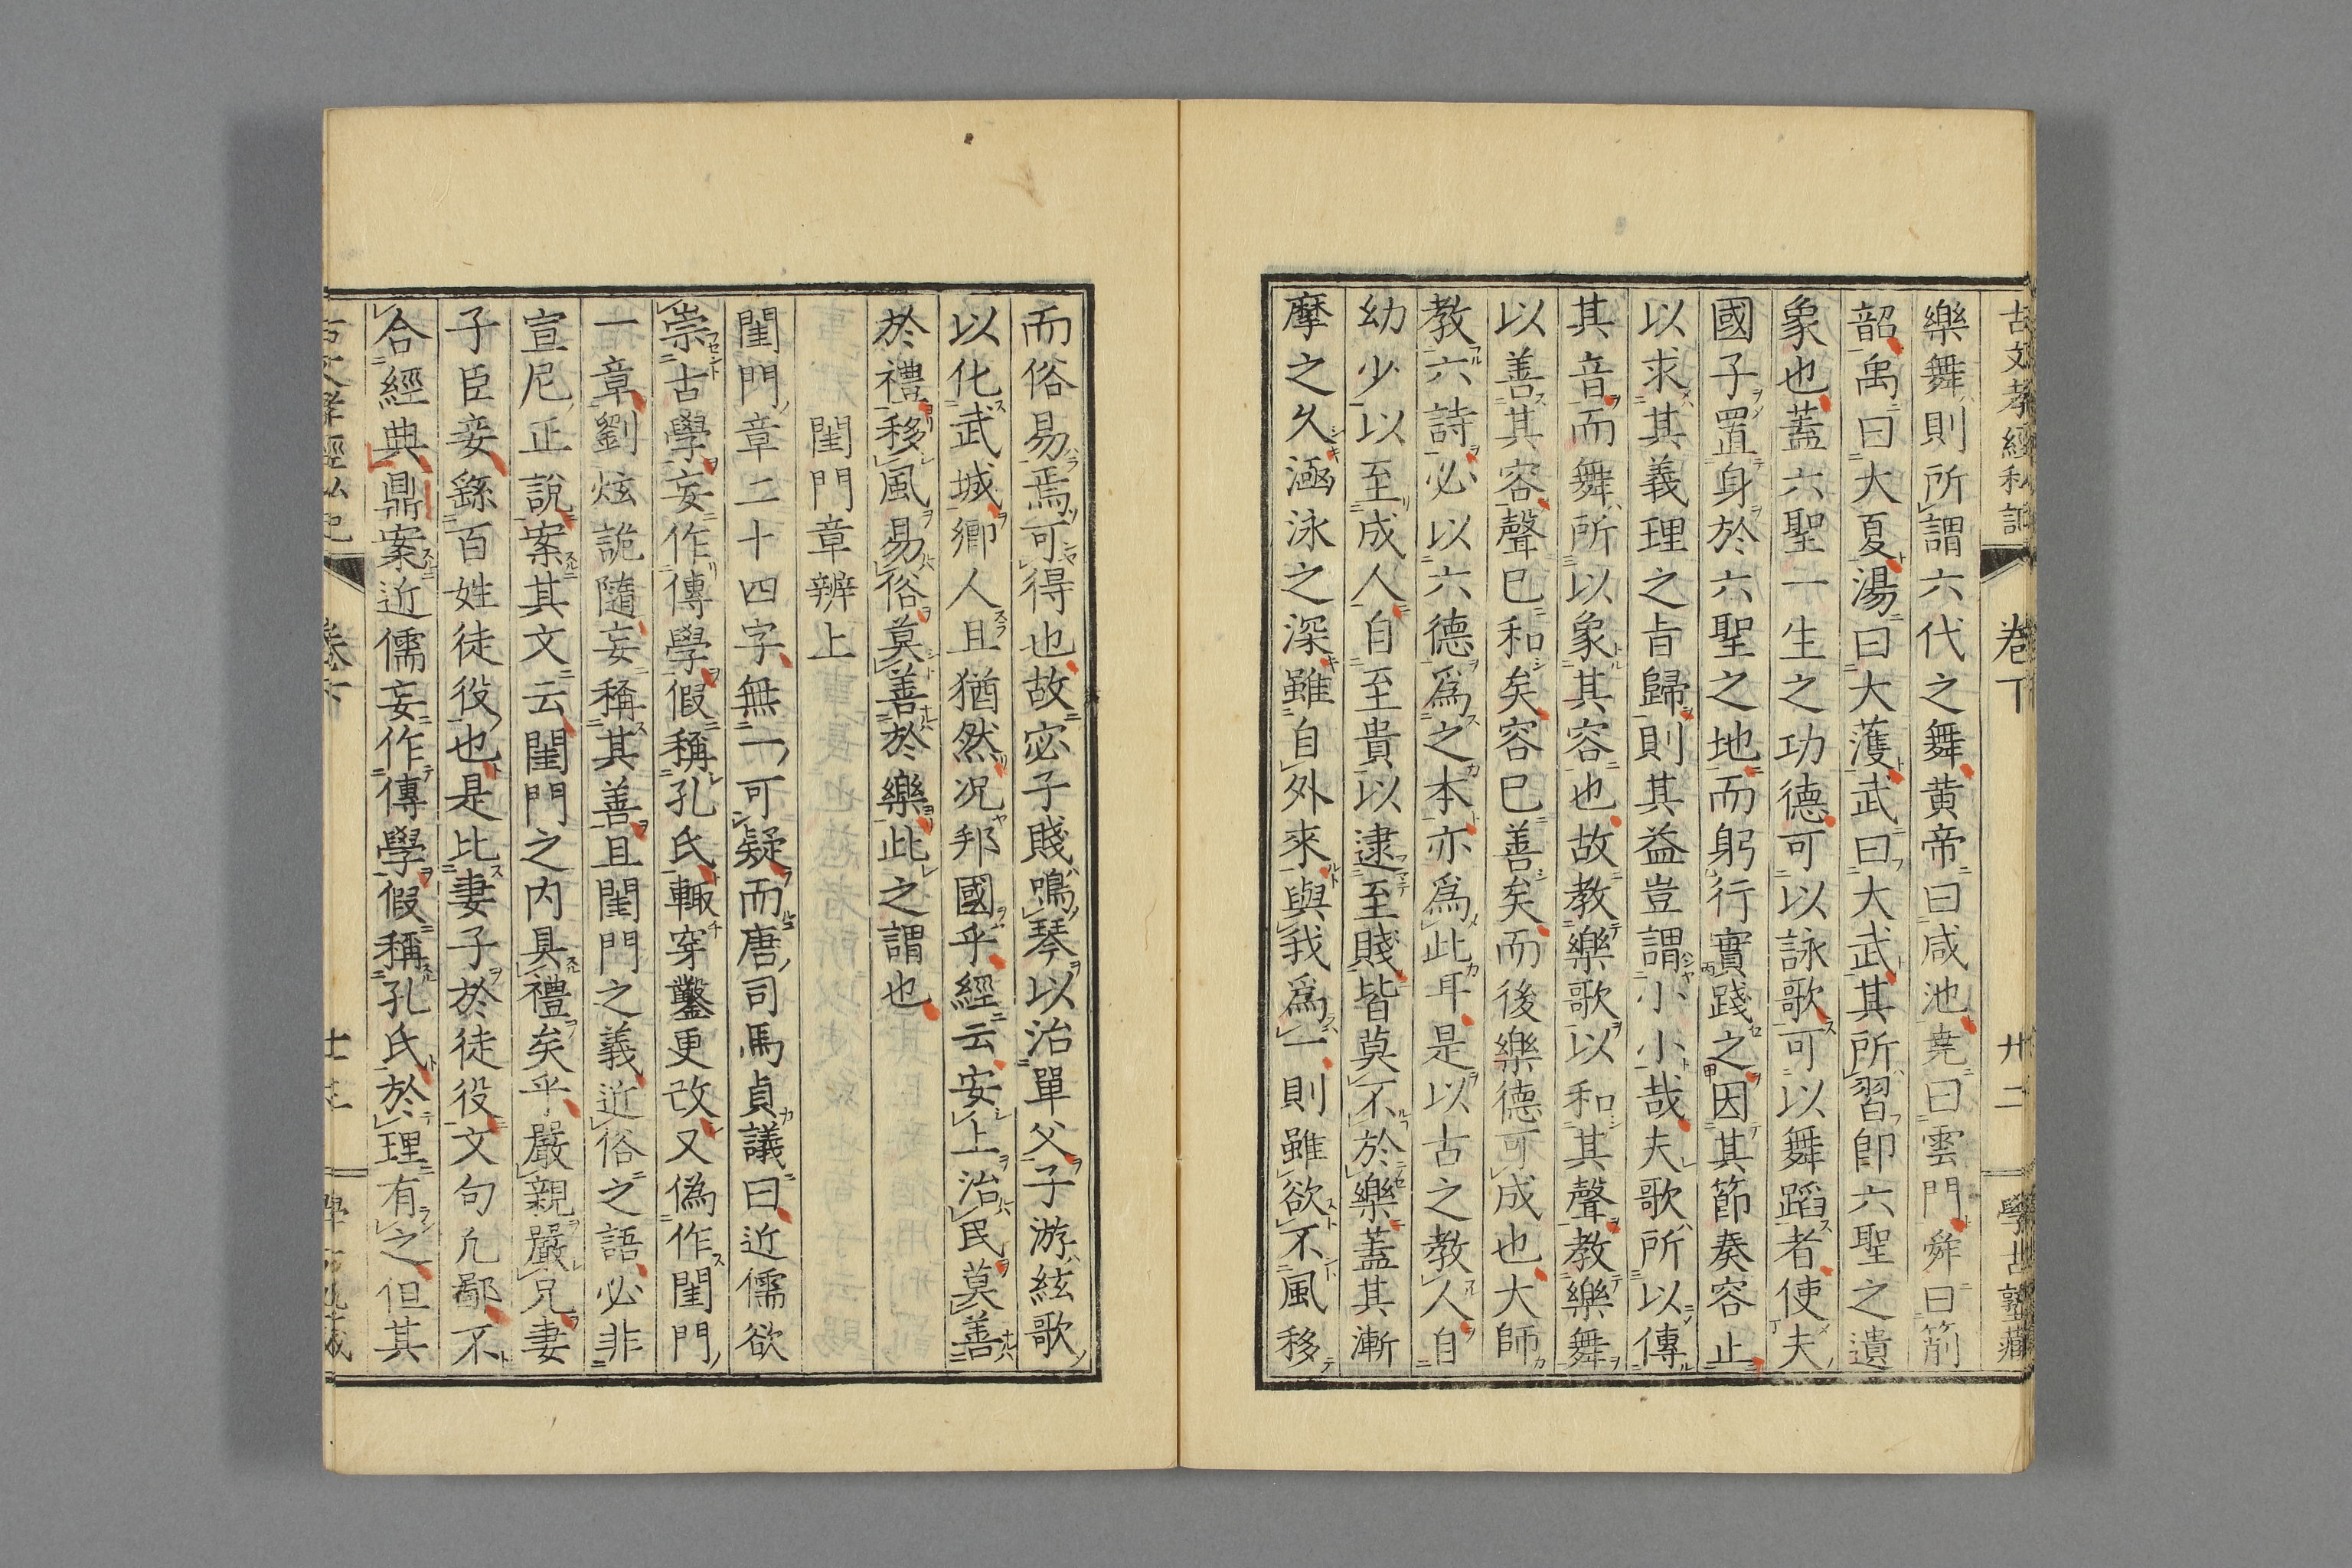 古文孝經私記
卷下
廿二
學古塾藏
樂舞則所謂六代之舞黃帝曰咸池堯曰雲門舜曰箾
韶禹曰大夏湯曰大䕶武曰大武其所習卽六聖之遺
象也蓋六聖一生之功德可以詠歌可以舞蹈者使夫
國子置身於六聖之地而躬行實踐之因其節奏容止
以求其義理之旨歸則其益豈謂小小哉夫歌所以傳
其音而舞所以象其容也故教樂歌以和其聲教樂舞
以善其容聲已和矣容已善矣而後樂德可成也大師
教六詩必以六德爲之本亦爲此耳是以古之教人自
幼少以至成人自至貴以逮至賤皆莫不於樂蓋其漸
摩之久涵泳之深雖自外來與我爲一則雖欲不風移
而俗易焉可得也故宓子賤鳴琴以治單父子游絃歌
以化武城鄕人且猶然况邦國乎經云安上治民莫善
於禮移風易俗莫善於樂此之謂也
閨門章辨上
閨門章二十四字無一可疑而唐司馬貞議曰近儒欲
崇古學妄作傳學假稱孔氏輙穿鑿更改又偽作閨門
一章劉炫詭隨妄稱其善且閨門之義近俗之語必非
宣尼正說案其文云閨門之内具禮矣乎嚴親嚴兄妻
子臣妾繇百姓徒役也是比妻子於徒役文句凢鄙不
合經典鼎案近儒妄作傳學假稱孔氏於理有之但其